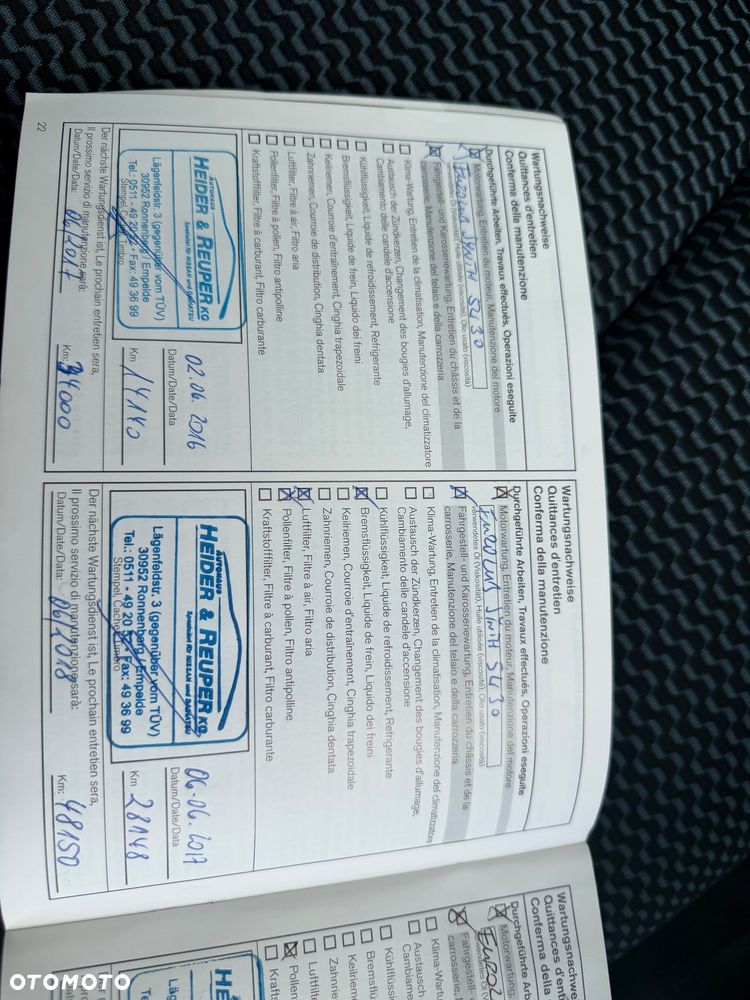 Wartungsnachweise
Quittances d'entretien
Conferma della manutenzione
Durchgeführte Arbeiten, Travaux effectués, Operazioni eseguite
Motorwartung, Entretien du moteur, Manutenzione del motore
Verwendetes Öl (Viskosität), Huile utilisée (viscosité), Olio usato (viscosità)
5W30
Fahrgestell- und Karosseriewartung, Entretien du châssis et de la
carrosserie, Manutenzione del telaio e della carrozzeria
Klima-Wartung, Entretien de la climatisation, Manutenzione del climatizzatore
Austausch der Zündkerzen, Changement des bougies d'allumage,
Cambiamento delle candele d'accensione
Kühlflüssigkeit, Liquide de refroidissement, Refrigerante
Bremsflüssigkeit, Liquide de frein, Liquido dei freini
Keilriemen, Courroie d'entraînement, Cinghia trapezoidale
Zahnriemen, Courroie de distribution, Cinghia dentata
Luftfilter, Filtre à air, Filtro aria
Pollenfilter, Filtre à pollen, Filtro antipolline
Kraftstofffilter, Filtre à carburant, Filtro carburante
AUTOHAUS
HEIDER & REUPER KG
Spezialist für NISSAN und DAIHATSU
Lägenfeldstr. 3 (gegenüber vom TÜV)
30952 Ronnenberg / Empelde
Tel.: 0511 - 49 20 52 • Fax: 49 36 99
Stempel, Cachet, Timbro
02.06.2016
Datum/Date/Data
Km 14140
Der nächste Wartungsdienst ist, Le prochain entretien sera,
Il prossimo servizio di manutenzione sarà:
Datum/Date/Data: 06/2017 Km: 34000
22
Wartungsnachweise
Quittances d'entretien
Conferma della manutenzione
Durchgeführte Arbeiten, Travaux effectués, Operazioni eseguite
Motorwartung, Entretien du moteur, Manutenzione del motore
Verwendetes Öl (Viskosität), Huile utilisée (viscosité), Olio usato (viscosità)
5W30
Fahrgestell- und Karosseriewartung, Entretien du châssis et de la
carrosserie, Manutenzione del telaio e della carrozzeria
Klima-Wartung, Entretien de la climatisation, Manutenzione del climatizzatore
Austausch der Zündkerzen, Changement des bougies d'allumage,
Cambiamento delle candele d'accensione
Kühlflüssigkeit, Liquide de refroidissement, Refrigerante
Bremsflüssigkeit, Liquide de frein, Liquido dei freini
Keilriemen, Courroie d'entraînement, Cinghia trapezoidale
Zahnriemen, Courroie de distribution, Cinghia dentata
Luftfilter, Filtre à air, Filtro aria
Pollenfilter, Filtre à pollen, Filtro antipolline
Kraftstofffilter, Filtre à carburant, Filtro carburante
AUTOHAUS
HEIDER & REUPER KG
Spezialist für NISSAN und DAIHATSU
Lägenfeldstr. 3 (gegenüber vom TÜV)
30952 Ronnenberg / Empelde
Tel.: 0511 - 49 20 52 • Fax: 49 36 99
Stempel, Cachet, Timbro
06.06.2017
Datum/Date/Data
Km 28148
Der nächste Wartungsdienst ist, Le prochain entretien sera,
Il prossimo servizio di manutenzione sarà:
Datum/Date/Data: 06/2018 Km: 48150
Wartungsnachwe
Quittances d'en
Conferma della
Durchgeführte Arb
Motorwartung,
Fahrgestell-
carrosserie,
Klima-Wart
Austausch
Cambiam
Kühlflüssi
Bremsflü
Keilriem
Zahnri
Luftfilt
Pollen
Krafts
HEI
OTOMOTO